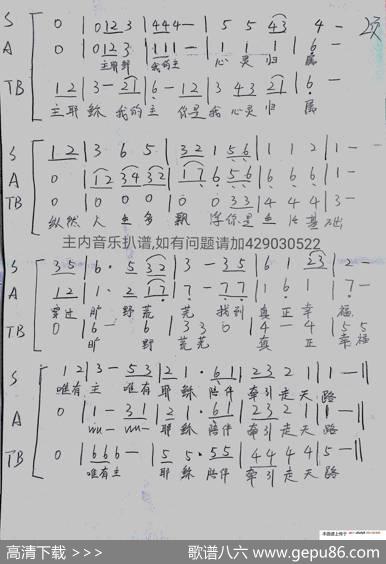 S 0 | 0 12 3 | 4 4 4 - | 5 5 43 4 - 2次
A 0 | 0 12 3 | 1 1 1 - | 1 1 1 | 6 -
主耶稣 我的主 心灵归属
TB 12 | 3 - 21 | 6 - 12 | 3 43 21 | 6 -
主耶稣 我的主 你是我心灵归属
S 12 | 3 6 5 | 32 1 56 | 1 1 2 | 1 -
A 0 | 12 34 32 | 17 6 56 | 6 6 6 | 1 -
TB 0 | 0 0 0 | 0 0 33 | 4 4 4 | 3 -
纵然人生多飘浮你是生活基础
主内音乐扒谱,如有问题请加429030522
S 35 | 6 · 5 32 | 3 - 35 | 6 1 23 | 2 -
A 12 | 1 · 2 17 | 7 - 77 | 1 6 1 | 7 -
穿过旷野荒芜 找到真正幸福
TB 0 | 6 - 6 | 3 3 0 | 4 - 4 | 5 5
旷野荒芜 真正幸福
S 12 | 3 - 53 | 21 · 61 | 23 2 1 | 1 - ||
唯有主 唯有耶稣陪伴牵引走天路
A 0 | 1 - 31 | 21 · 61 | 23 2 1 | 1 - ||
m - m - 耶稣陪伴牵引走天路
TB 0 | 6 6 6 - | 5 5 · 55 | 44 4 4 | 5 - ||
唯有主 耶稣陪伴牵引走天路
高清下载 >>>
歌谱八六 www.gepu86.com